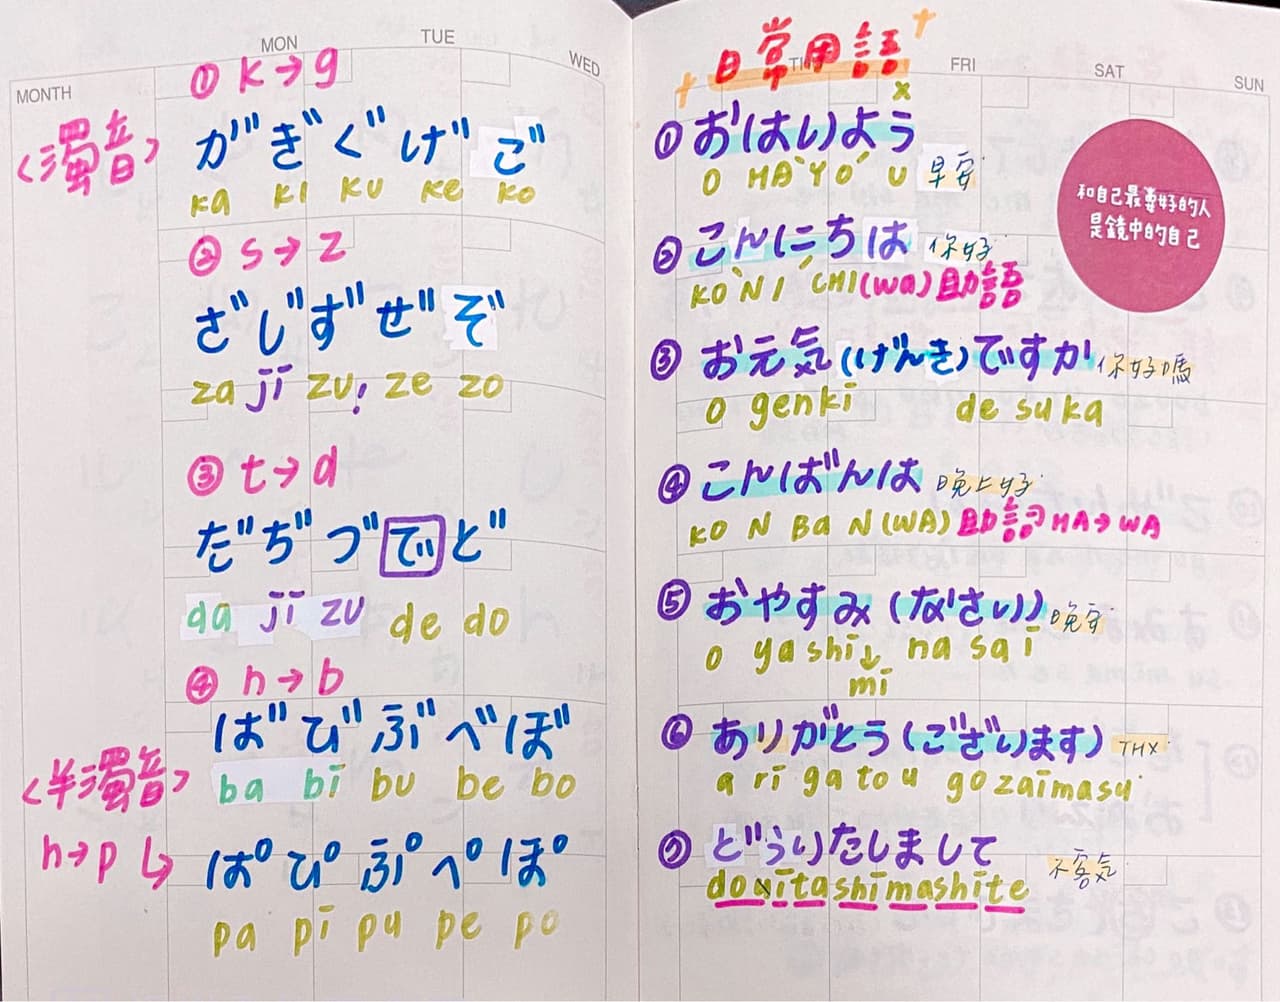 MONTH
MON
TUE
WED
① k→g
<濁音>
が ぎ ぐ げ ご
ka ki ku ke ko
② s→z
ざ じ ず ぜ ぞ
za ji zu! ze zo
③ t→d
だ ぢ づ で ど
da ji zu de do
④ h→b
ば び ぶ べ ぼ
ba bi bu be bo
<半濁音>
h→p ↳
ぱ ぴ ぷ ぺ ぽ
pa pi pu pe po
FRI
SAT
SUN
日常用語
x
① おはいよう
O HA YO U 早安
② こんにちは 你好
KO NI CHI (wa) 助語
③ お元気(げんき)ですか 你好嗎
o genki de suka
④ こんばんは 晚上好
KO N Ba N (WA) 助詞 HA→WA
⑤ おやすみ (なさい) 晚安
o yashi↓ na sai
mi
⑥ ありがとう (ございます) THX
a ri ga to u go zaimasu
⑦ どういたしまして 不客気
douitashimashite
和自己最要好的人
是鏡中的自己